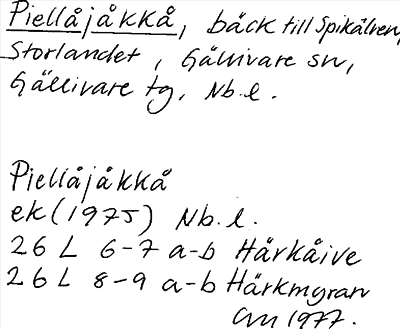 Piellåjåkkå, bäck till Spikälven,
Storlandet, Gällivare sn,
Gällivare tg, Nb.l.
Piellåjåkkå
ek (1975) Nb.l.
26 L 6-7 a-b Hårkåive
26 L 8-9 a-b Härkmyran
1977.